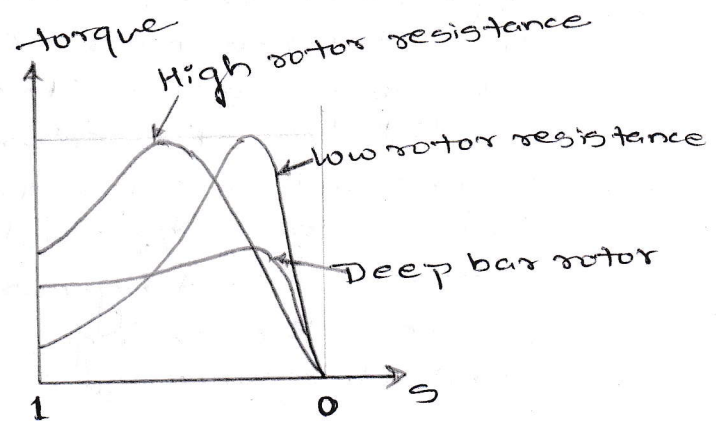 torque
High rotor resistance
low rotor resistance
Deep bar rotor
S
1
0